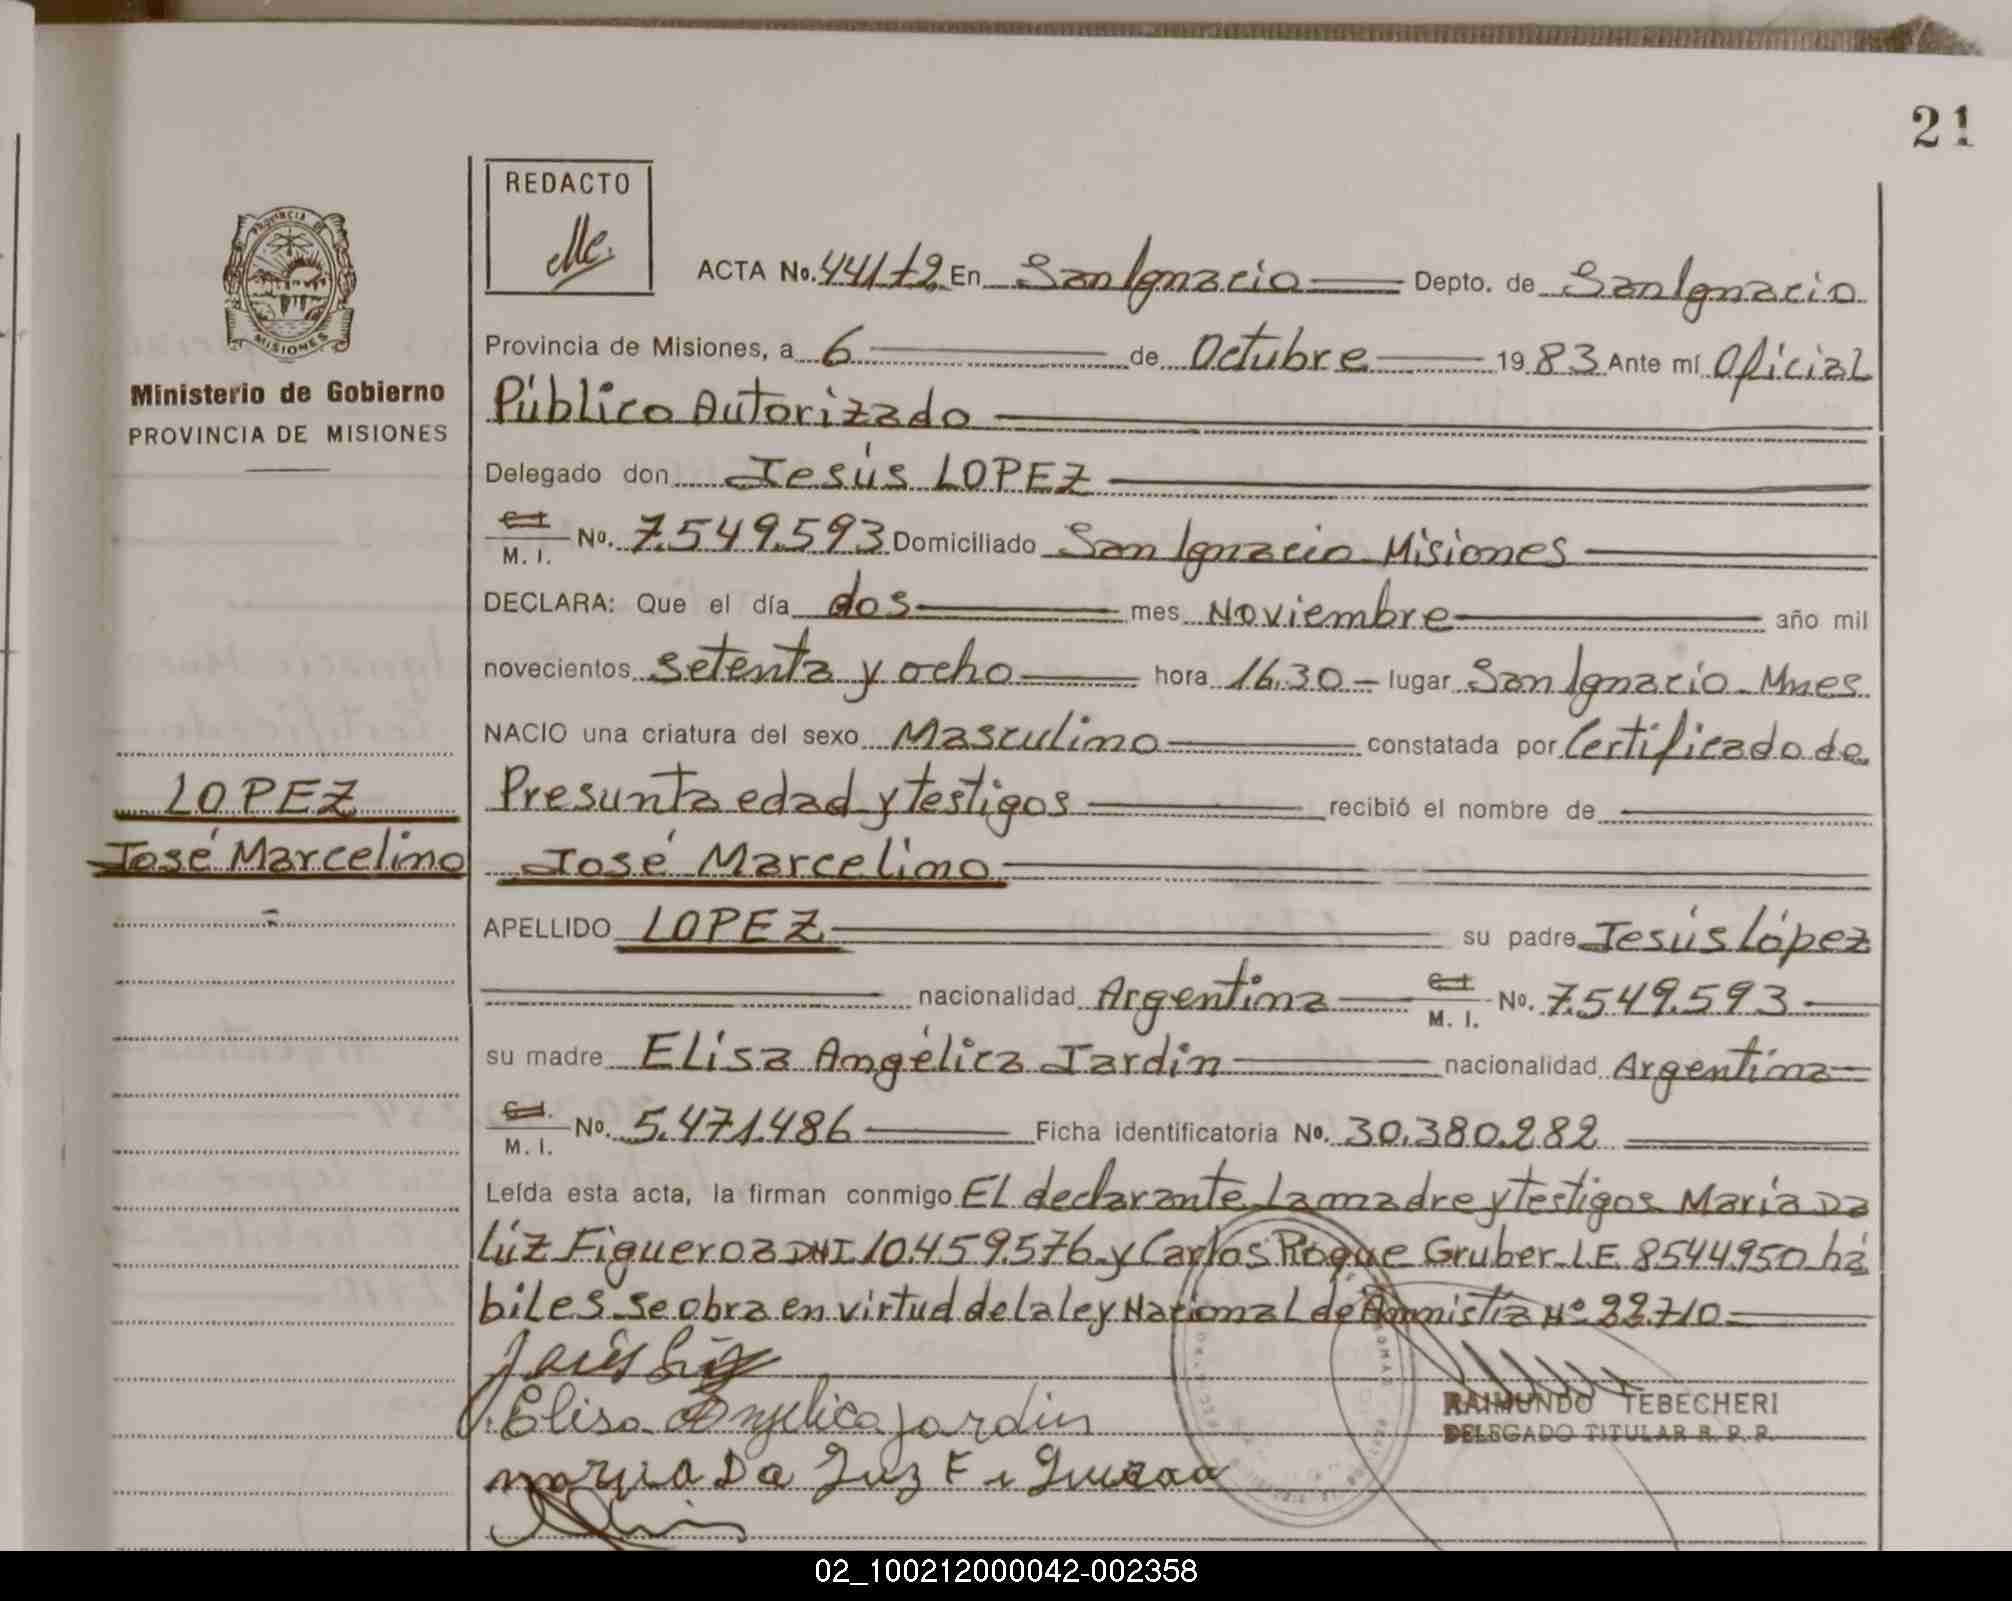 21
REDACTO
PROVINCIA DE
MISIONES
Ministerio de Gobierno
PROVINCIA DE MISIONES
ACTA No. 441 t2 En San Ignacio Depto. de San Ignacio
Provincia de Misiones, a 6 de Octubre 1983 Ante mí Oficial
Público Autorizado
Delegado don Jesús LOPEZ
C.I.
M. I. No. 7.549.593 Domiciliado San Ignacio Misiones
DECLARA: Que el día dos mes Noviembre año mil
novecientos setenta y ocho hora 16.30 - lugar San Ignacio - Mnes
NACIO una criatura del sexo Masculino constatada por Certificado de
Presunta edad y testigos recibió el nombre de
LOPEZ
José Marcelino
José Marcelino
APELLIDO LOPEZ su padre Jesús López
nacionalidad Argentina C.I. M. I. No. 7.549.593
su madre Elisa Angélica Jardín nacionalidad Argentina
C.I.
M. I. No. 5.471.486 Ficha identificatoria No. 30.380.282
Leída esta acta, la firman conmigo El declarante la madre y testigos María Da
Lúz Figueroa DNI 10.459.576 y Carlos Roque Gruber L.E. 8544950 há
biles se obra en virtud de la ley Nacional de Amnistía Nº 22.710
Elisa Angelica jardin
maria Da Luz Figueroa
RAIMUNDO TEBECHERI
DELEGADO TITULAR R. P. P.
02_100212000042-002358